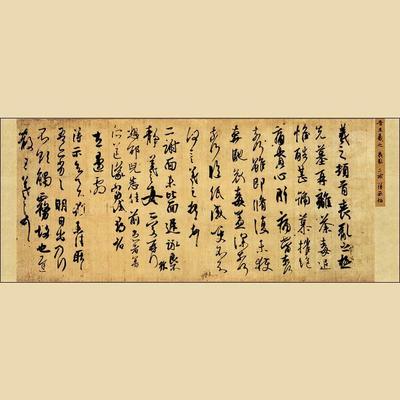 晋王羲之 喪乱 二謝 得示帖
羲之頓首喪亂之極
先墓再離荼毒追
惟酷甚號慕摧絕
痛貫心肝痛當奈何
奈何雖即脩復未獲
奔馳哀毒益深奈何
奈何臨紙感哽不知
何言羲之頓首頓首
二謝面未比面遲詠良不
靜羲之女愛愛再拜
想邰兒悉佳前患者善
左邊劇
得示知足下猶未佳耿耿
吾亦劣劣明日出乃行
不欲觸霧故也遲
散王羲之頓首